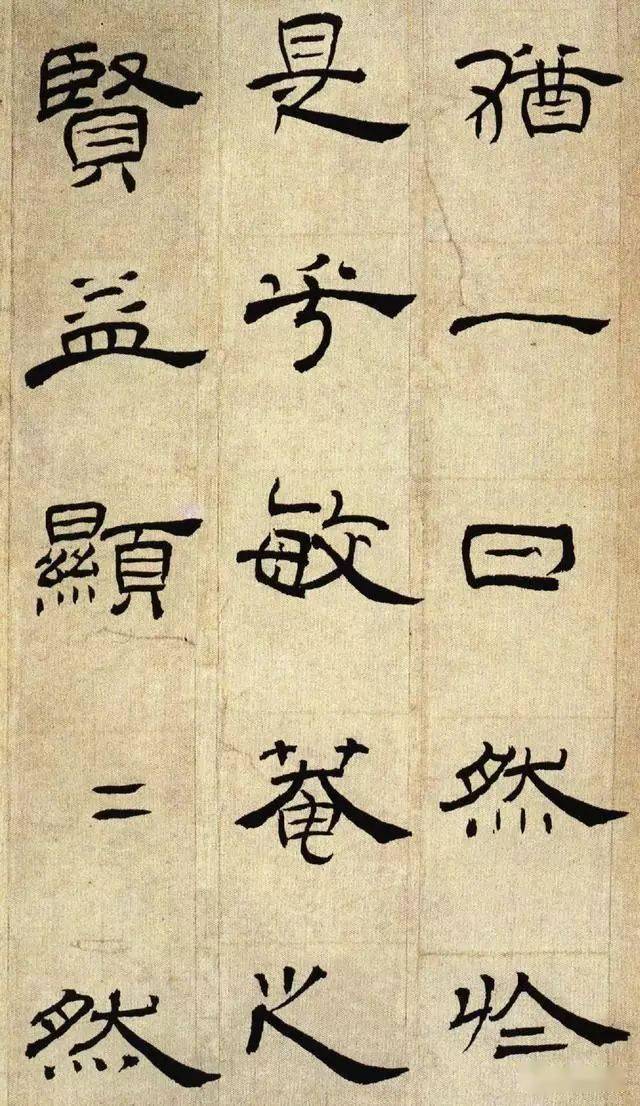 猶一日然於
是乎敏菴之
賢益顯〻然